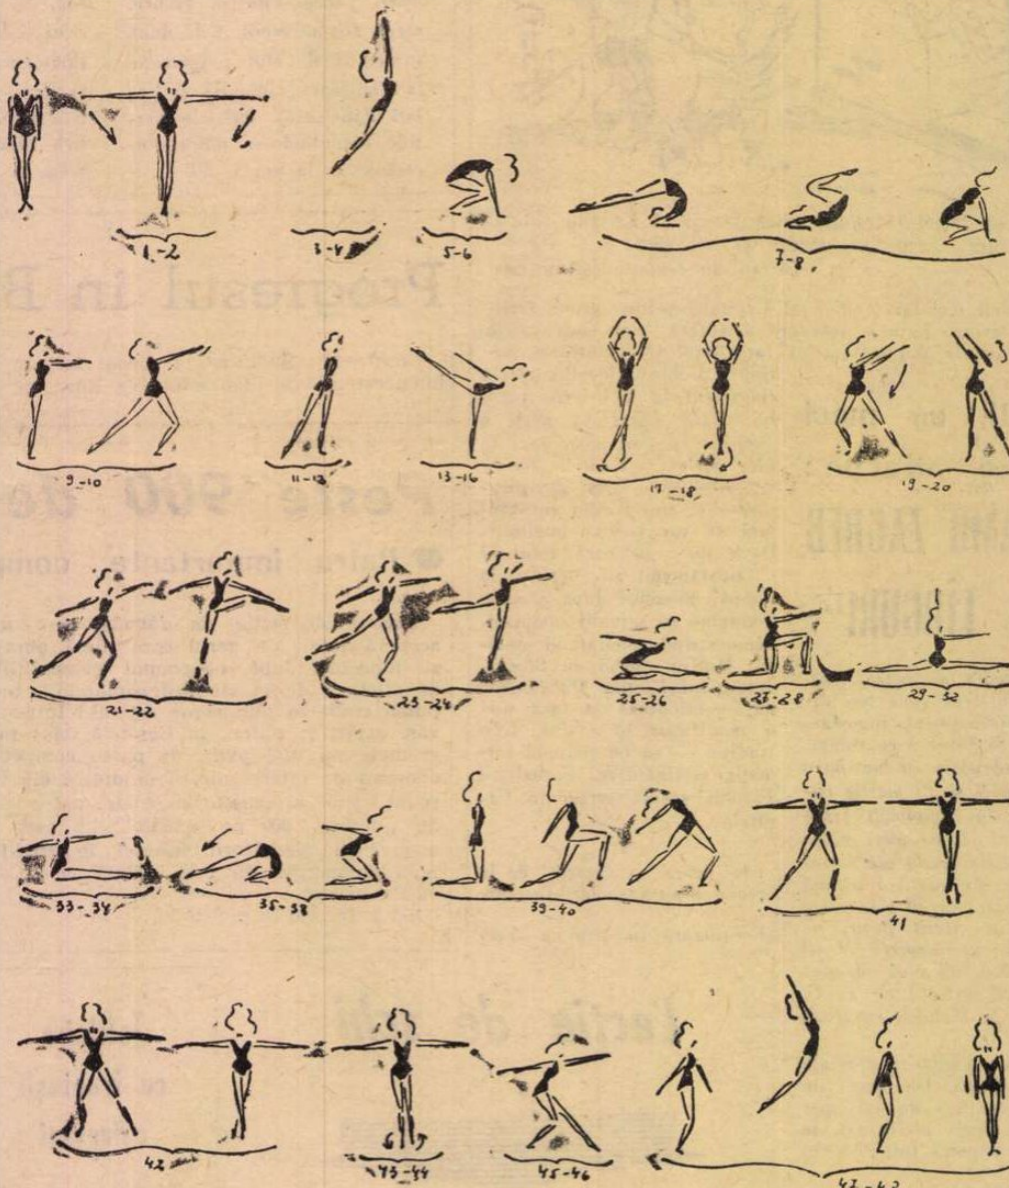 1-2
3-4
5-6
7-8.
9-10
11-12
13-16
17-18.
19-20
21-22
23-24
25-26
27-28
29-32
33-34
35-38
39-40
41
42
43-44
45-46
47-48